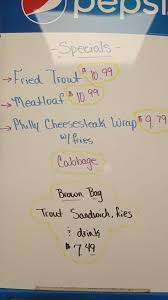 pepsi
-Specials-
→Fried Trout $10.99
→Meatloaf $10.99
→Philly Cheesesteak Wrap $9.79
w/fries
Cabbage
Brown Bag
Trout Sandwich, fries
& drink
$7.49